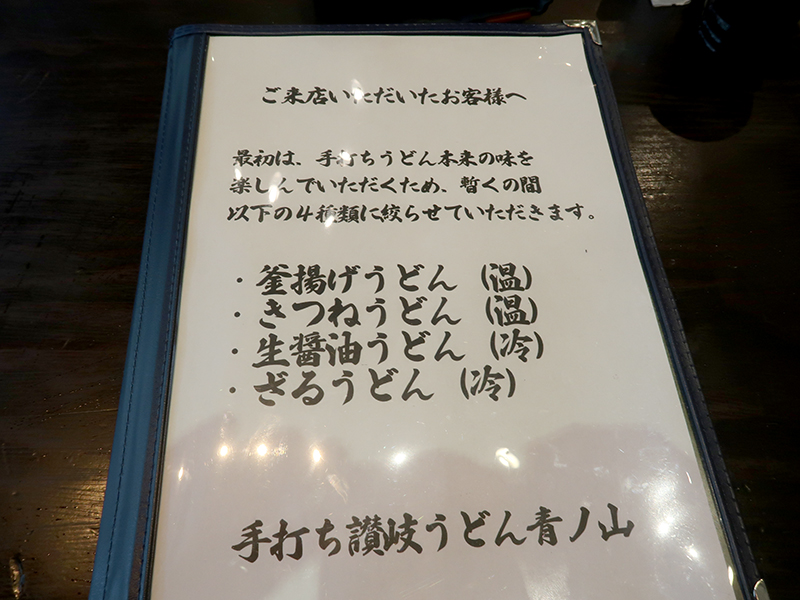 ご来店いただいたお客様へ
最初は、手打ちうどん本来の味を
楽しんでいただくため、暫くの間
以下の4種類に絞らせていただきます。
・釜揚げうどん（温）
・きつねうどん（温）
・生醤油うどん（冷）
・ざるうどん（冷）
手打ち讃岐うどん青ノ山